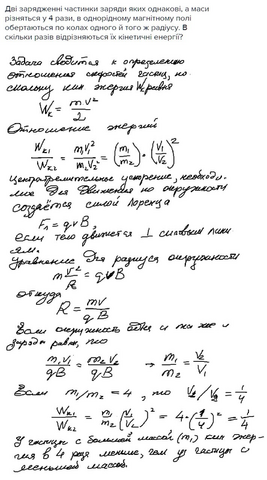 Дві зарядженні частинки заряди яких однакові, а маси
різняться у 4 рази, в однорідному магнітному полі
обертаються по колах одного й того ж радіусу. В
скільки разів відрізняються їх кінетичні енергії?
Задача сводится к определению
отношения скоростей частиц, по
скольку кин энергия W равна
W_k = mv²/2
Отношение энергий
W_k1/W_k2 = m₁v₁²/m₂v₂² = (m₁/m₂)·(v₁/v₂)²
Центростремительное ускорение, необходи-
мое для движения по окружности
создаётся силой Лоренца
F_л = qvB,
если тело движется ⊥ силовым лини
ям.
Уравнение для радиуса окружности
m v²/R = qvB
откуда
R = mv/qB
Если окружность одна и та же и
заряды равны, то
m₁v₁/qB = m₂v₂/qB → m₁/m₂ = v₂/v₁
Если m₁/m₂ = 4, то v₂/v₁ = 1/4
W_k1/W_k2 = m₁/m₂ (v₁/v₂)² = 4·(1/4)² = 1/4
У частицы с большей массой (m₁) кин энер-
гия в 4 раза меньше, чем у частицы с
меньшей массой.